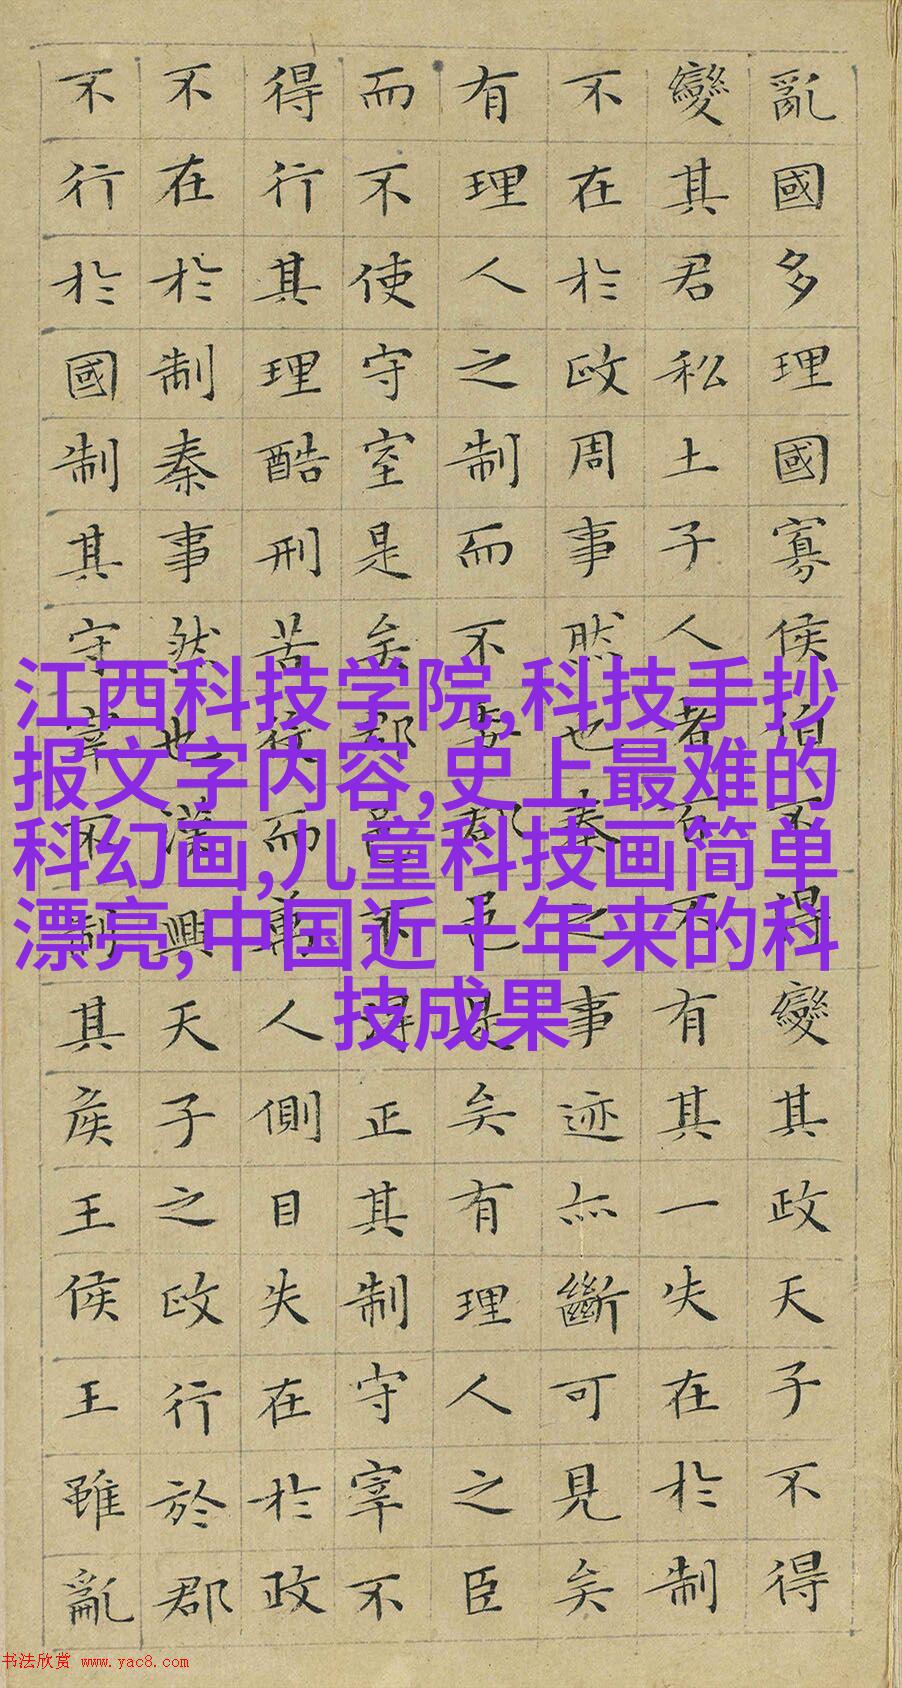 亂國多理國寡侯伯不得變其政天子不得
變其君私土子人者百不有其一失在於制
不在於政周事然也秦之事迹亦斷可見矣
有理人之制而不委郡邑是矣有理人之臣
而不使守室是矣郡邑不得正其制守宰不
得行其理酷刑苦役而萬人側目失在於政
不在於制秦事然也漢興天子之政行於郡
不行於國制其守宰不制其侯王侯王雖亂
江西科技学院,科技手抄
报文字内容,史上最难的
科幻画,儿童科技画简单
漂亮,中国近十年来的科
技成果
书法欣赏 www.yac8.com